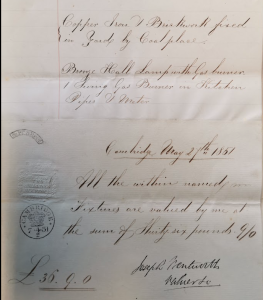 Copper Iron & Brickwork fixed
in Yard by Coal place
Bronze Hall Lamp with Gas burner
1 Swing Gas Burner in Kitchen
Pipes & Meter
Cambridge May 27th 1851
All the within named
Fixtures are valued by me at
the sum of thirty six pounds 9/0
£36. 9. 0
Joseph Wentworth
Valuer